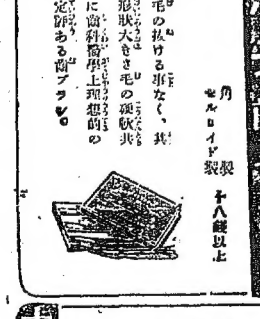 角製
セルロイド製
十八錢以上
毛の抜ける事なく、其
形狀大きさ毛の硬軟共
に齒科醫學上理想的の
定評ある齒ブラシ。